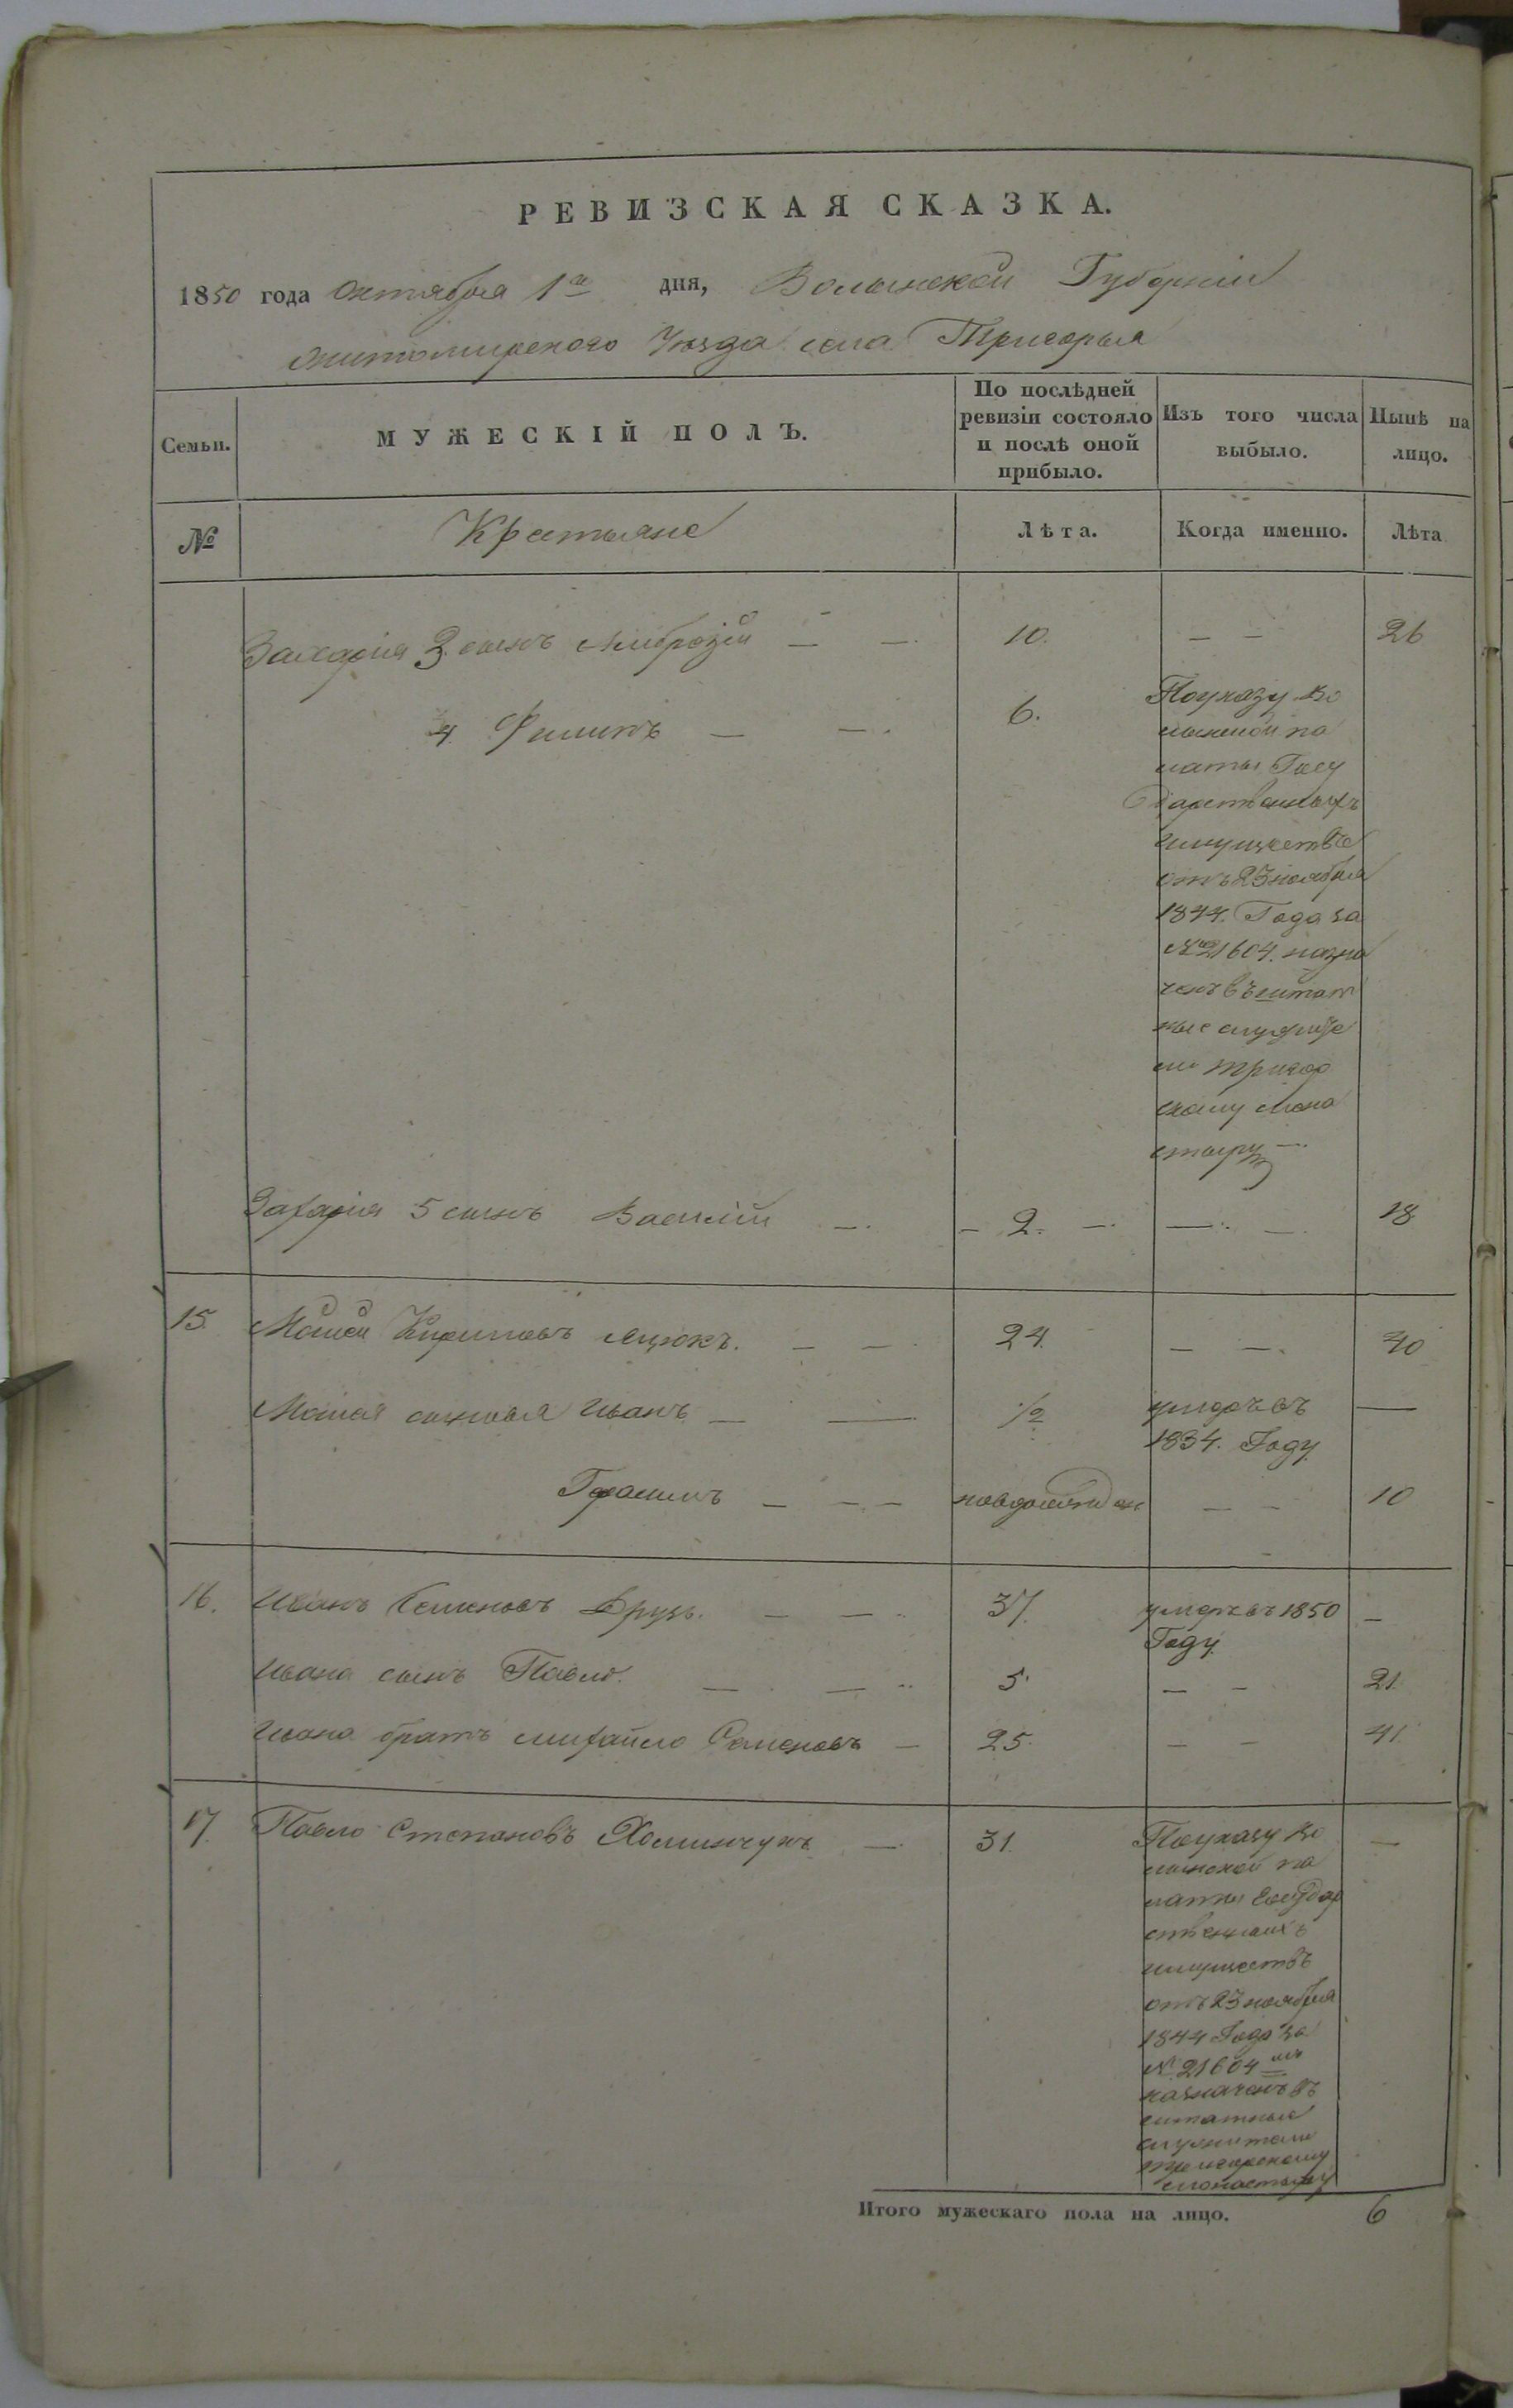 РЕВИЗСКАЯ СКАЗКА.
1850 года Октября 1го дня, Волынской Губерніи
Житомирского Уезда села Тригорья
Семьи.
МУЖЕСКІЙ ПОЛЪ.
По послѣдней ревизіи состояло и послѣ оной прибыло.
Изъ того числа выбыло.
Нынѣ на лицо.
№
Крестьяне
Лѣта.
Когда именно.
Лѣта
Захарія 3. сынъ Амброзій — —. 10. — — 26
4. Филипъ — —. 6.
По указу Во
лынской па
латы Госу
дарственныхъ
имуществъ
отъ 23 ноября
1844. Года за
№ 21604. назна
ченъ въ штат
ные служите
ли Тригор
скому Мона
стыру —.
Захарія 5 сынъ Василій —. — 2. —. —. —. 18
15. Мойсей Кириловъ Яцюкъ. — —. 24. — —. 40
Мойсея сыновья Иванъ — — 1/2 умеръ въ —
1834. Году
Герасимъ — — — новорожден — — 10
16. Иванъ Семеновъ Друзь. — —.. 37. умеръ въ 1850 —
Году.
Ивана сынъ Павло. — . — .. 5. — — 21.
Ивана братъ Михайло Семеновъ — 25. — — 41.
17. Павло Степановъ Хоминчукъ —. 31. —
По указу Во
лынской па
латы Государ
ственныхъ
имуществъ
отъ 23 ноября
1844 Года за
№ 21604 мъ
назначенъ въ
штатные
служители
Тригорскому
монастыру
Итого мужескаго пола на лицо. 6